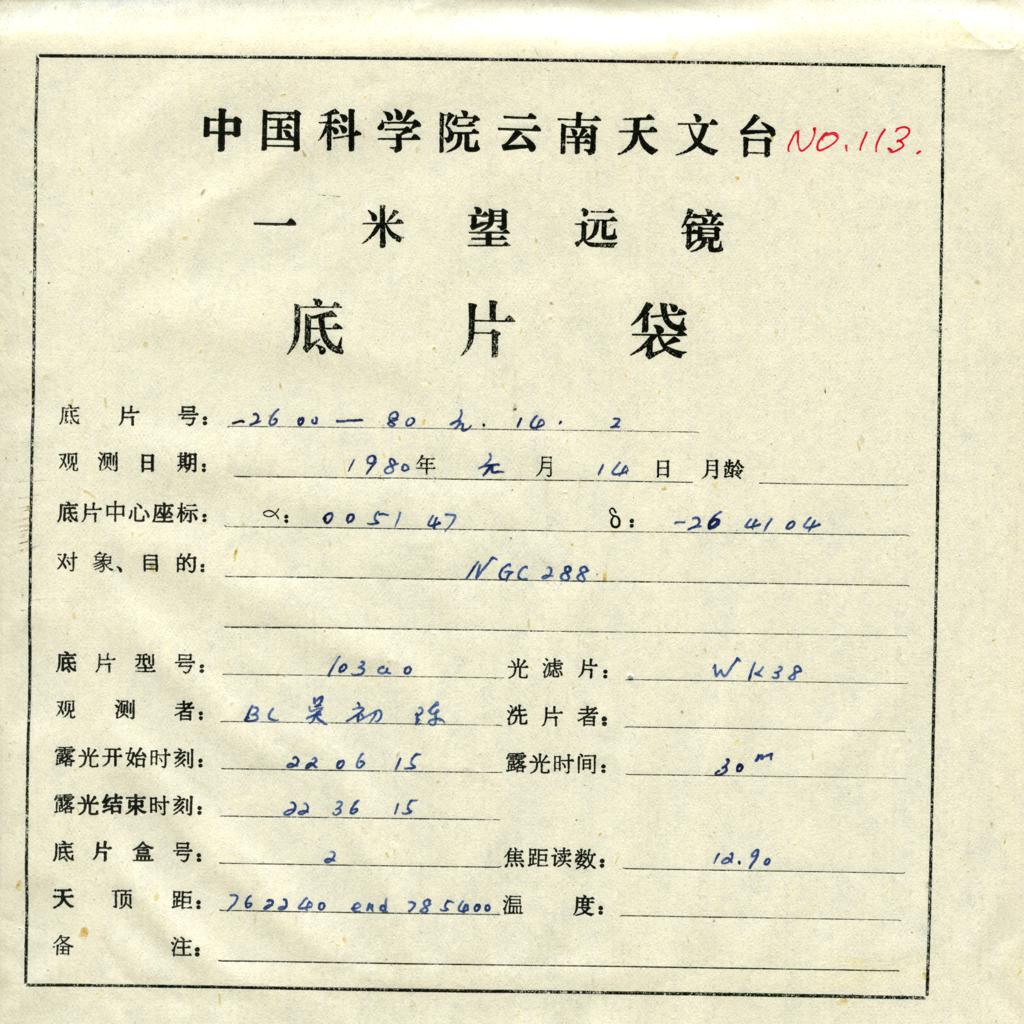 中国科学院云南天文台 NO.113.
一米望远镜
底片袋
底片号: -26 00 — 80 元. 14. 2
观测日期: 1980年 元月 14日 月龄
底片中心座标: α: 00 51 47 δ: -26 41 04
对象、目的: NGC 288
底片型号: 103aO 光滤片: WK38
观测者: BL 吴初 洗片者:
露光开始时刻: 22 06 15 露光时间: 30m
露光结束时刻: 22 36 15
底片盒号: 2 焦距读数: 12.90
天顶距: 76 22 40 end 78 54 00 温度:
备注: